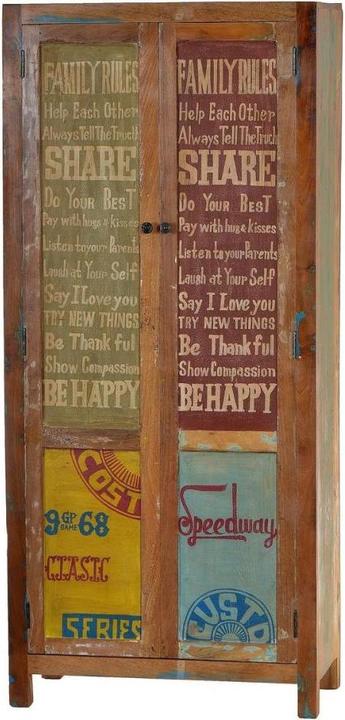 FAMILY RULES
Help Each Other
Always Tell The Truth
SHARE
Do Your Best
Pay with hugs & kisses
Listen to your Parents
Laugh at Your Self
Say I Love you
TRY NEW THINGS
Be Thankful
Show Compassion
BE HAPPY
FAMILY RULES
Help Each Other
Always Tell The Truth
SHARE
Do Your Best
Pay with hugs & kisses
Listen to your Parents
Laugh at Your Self
Say I Love you
TRY NEW THINGS
Be Thankful
Show Compassion
BE HAPPY
COSTO
9 GP GAME 68
CLASIC
SERIES
Speedway
CUSTO